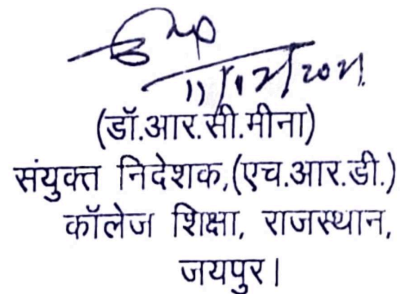 11/12/2021
(डॉ.आर.सी.मीना)
संयुक्त निदेशक,(एच.आर.डी.)
कॉलेज शिक्षा, राजस्थान,
जयपुर।